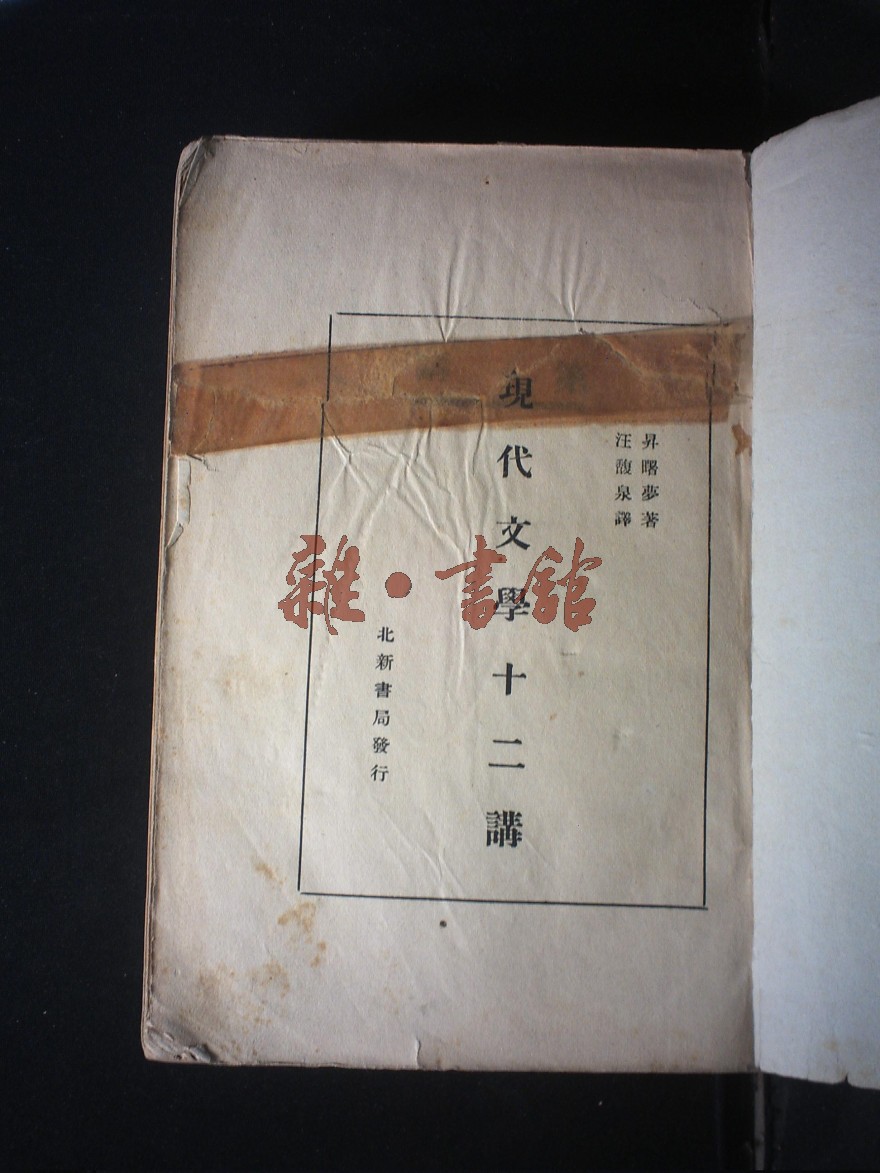 昇曙夢著
汪馥泉譯
現代文學十二講
北新書局發行
雜·書館